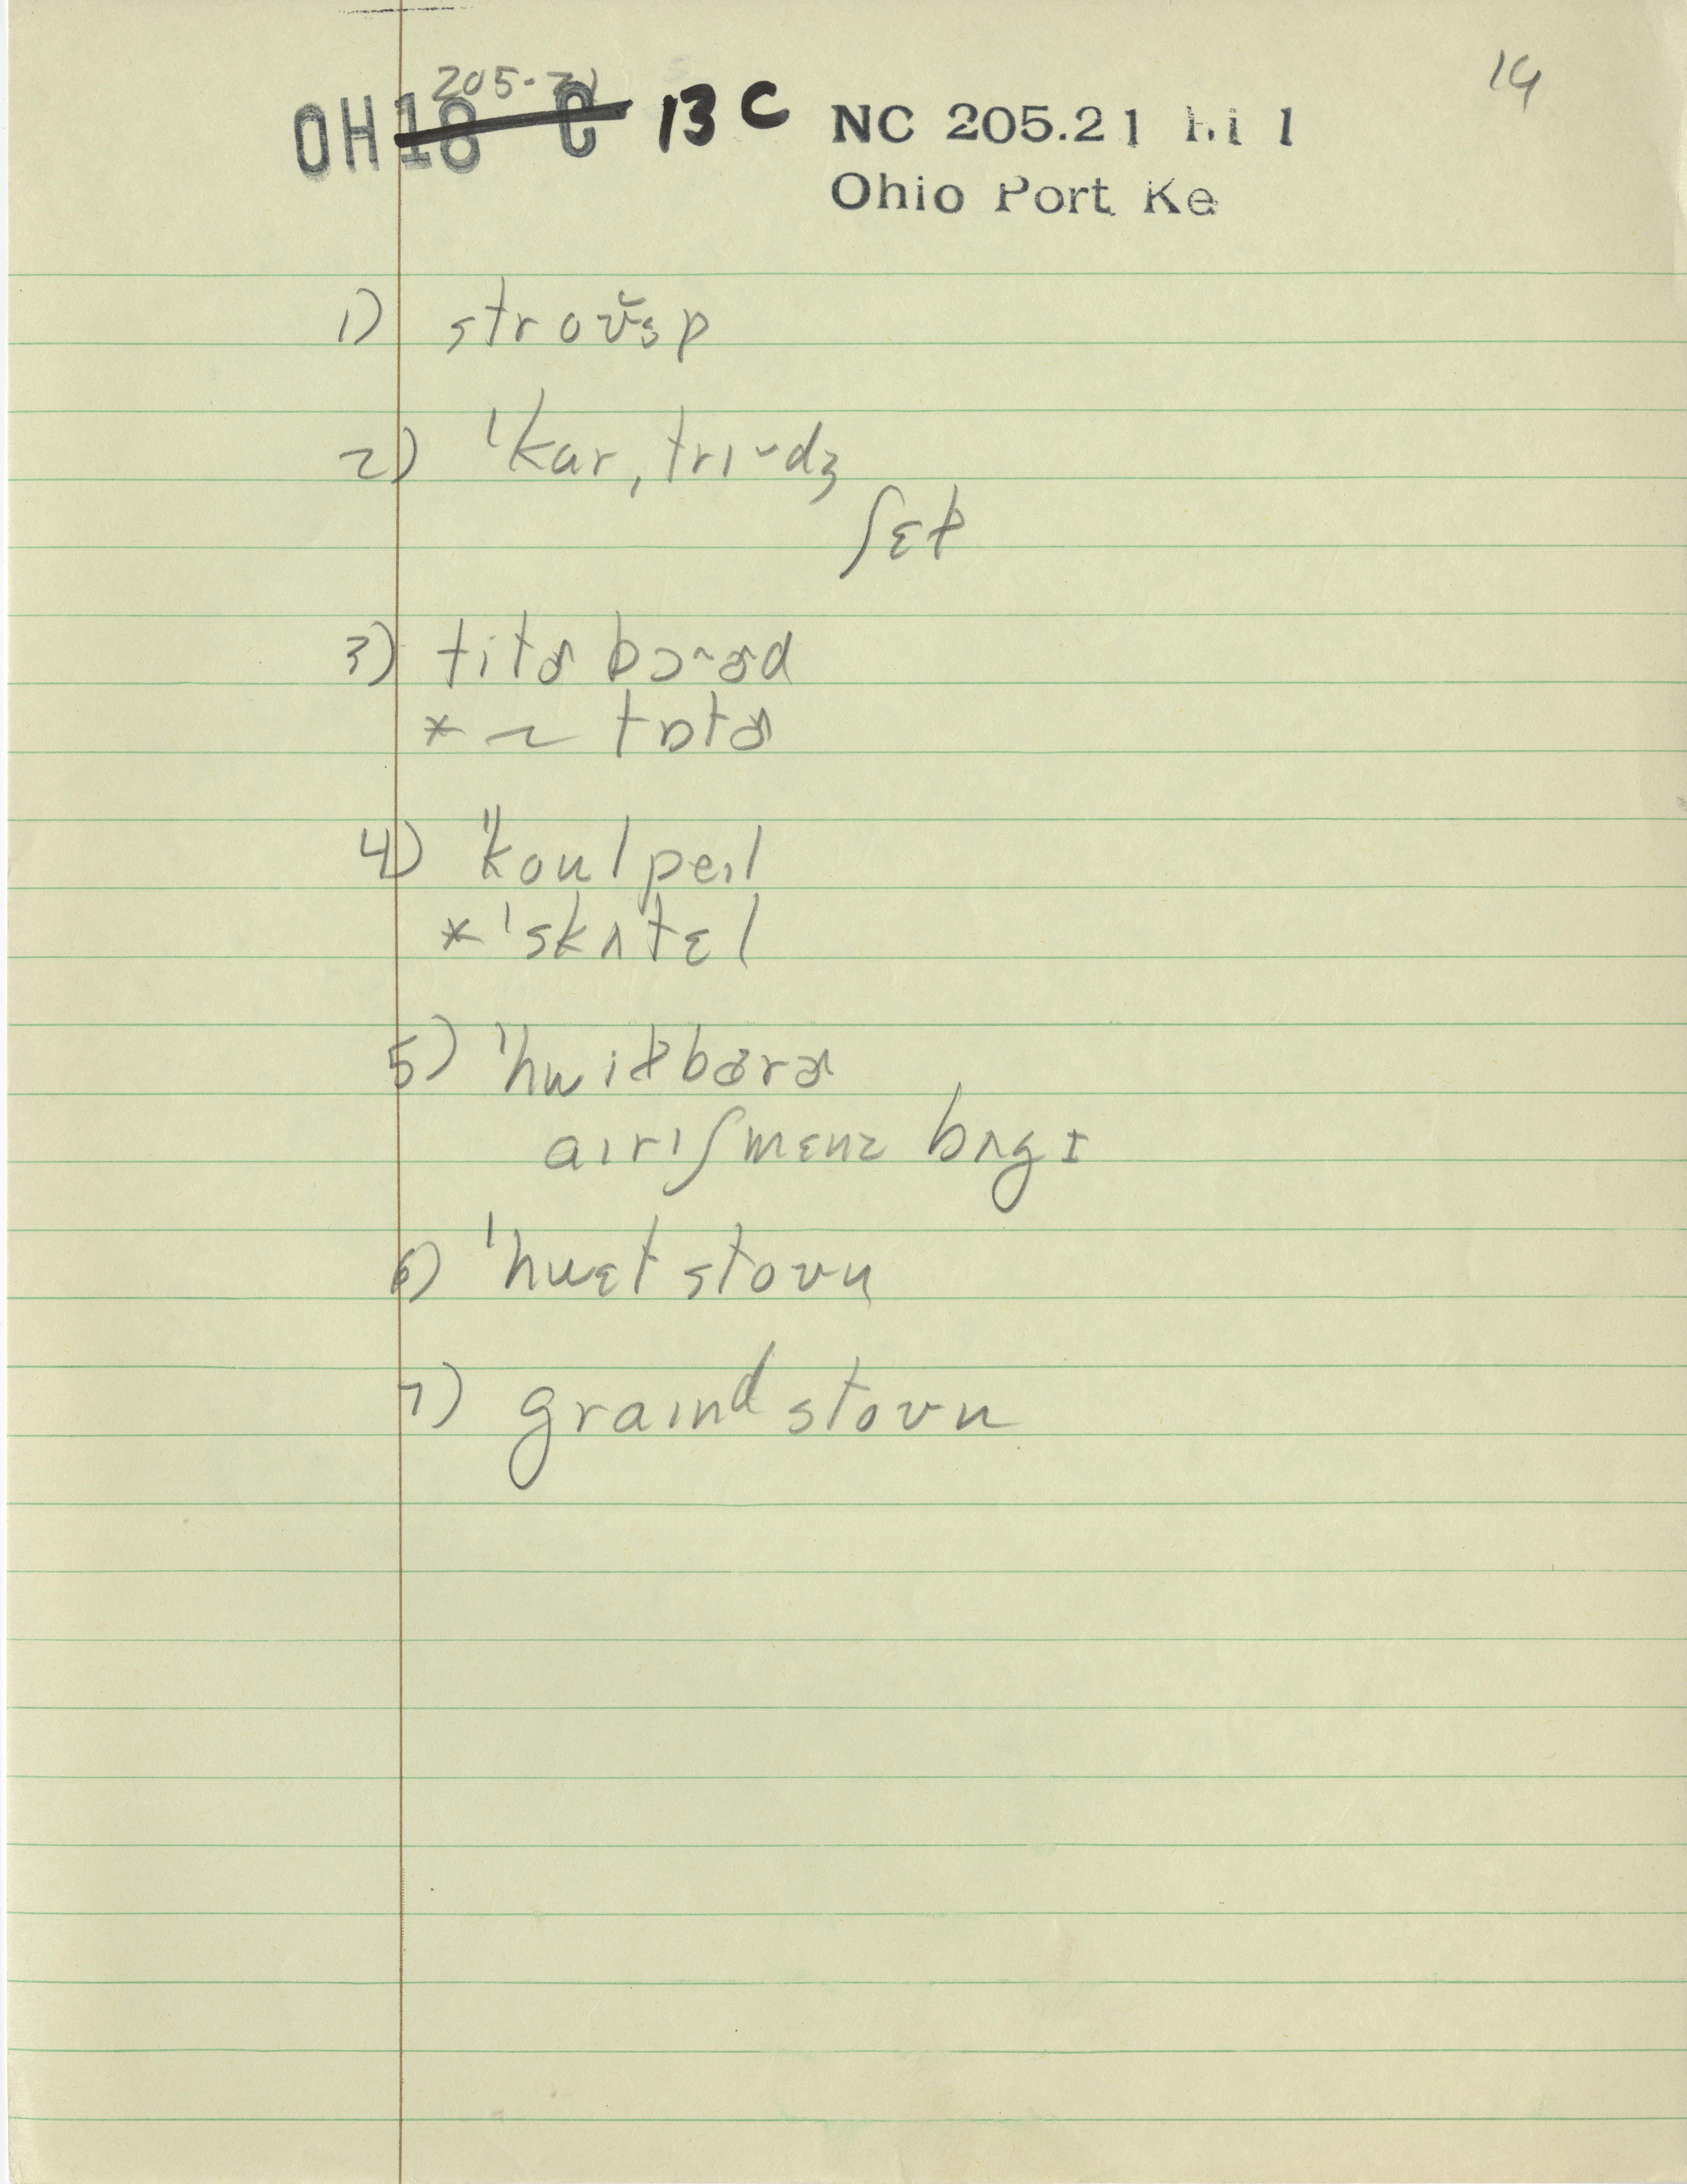 14
205-21
OH 18 C 13 C NC 205.21 hi 1
Ohio Port Ke
1) stroʊ̌sp
2) ˈkarˌtrɪ˘dʒ
ʃɛt̬
3) titɚ bɔ˞ɚd
* ~ tɒtɚ
4) ̎koulpeɪl
* ˈskʌtɛl
5) ˈhwit̬bɚrɚ
aɪrɪʃmɛnz bʌgɪ
6) ˈhwɛt stoʊn
7) graɪnᵈ stoʊn